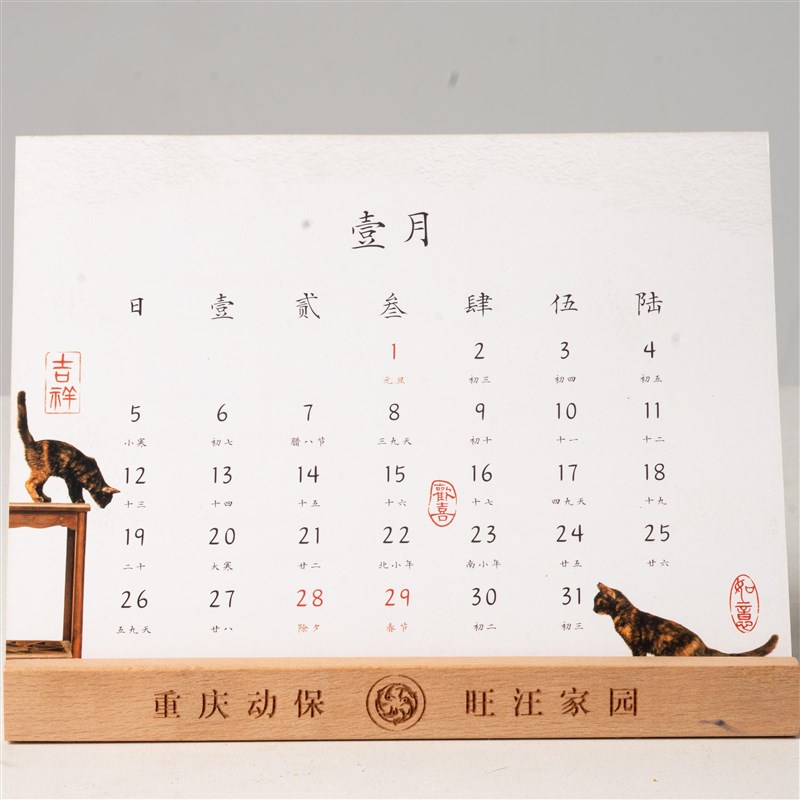 壹月
日 壹 贰 叁 肆 伍 陆
1 2 3 4
元旦 初三 初四 初五
吉祥
5 6 7 8 9 10 11
小寒 初七 腊八节 三九天 初十 十一 十二
12 13 14 15 16 17 18
十三 十四 十五 十六 十七 四九天 十九
歡喜
19 20 21 22 23 24 25
二十 大寒 廿二 北小年 南小年 廿五 廿六
26 27 28 29 30 31
五九天 廿八 除夕 春节 初二 初三
如意
重庆动保 旺汪家园